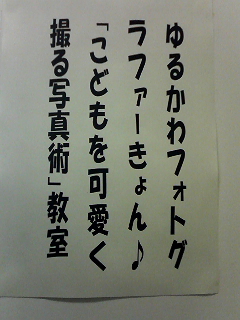 ゆるかわフォトグ
ラファーきょん♪
「こどもを可愛く
撮る写真術」教室